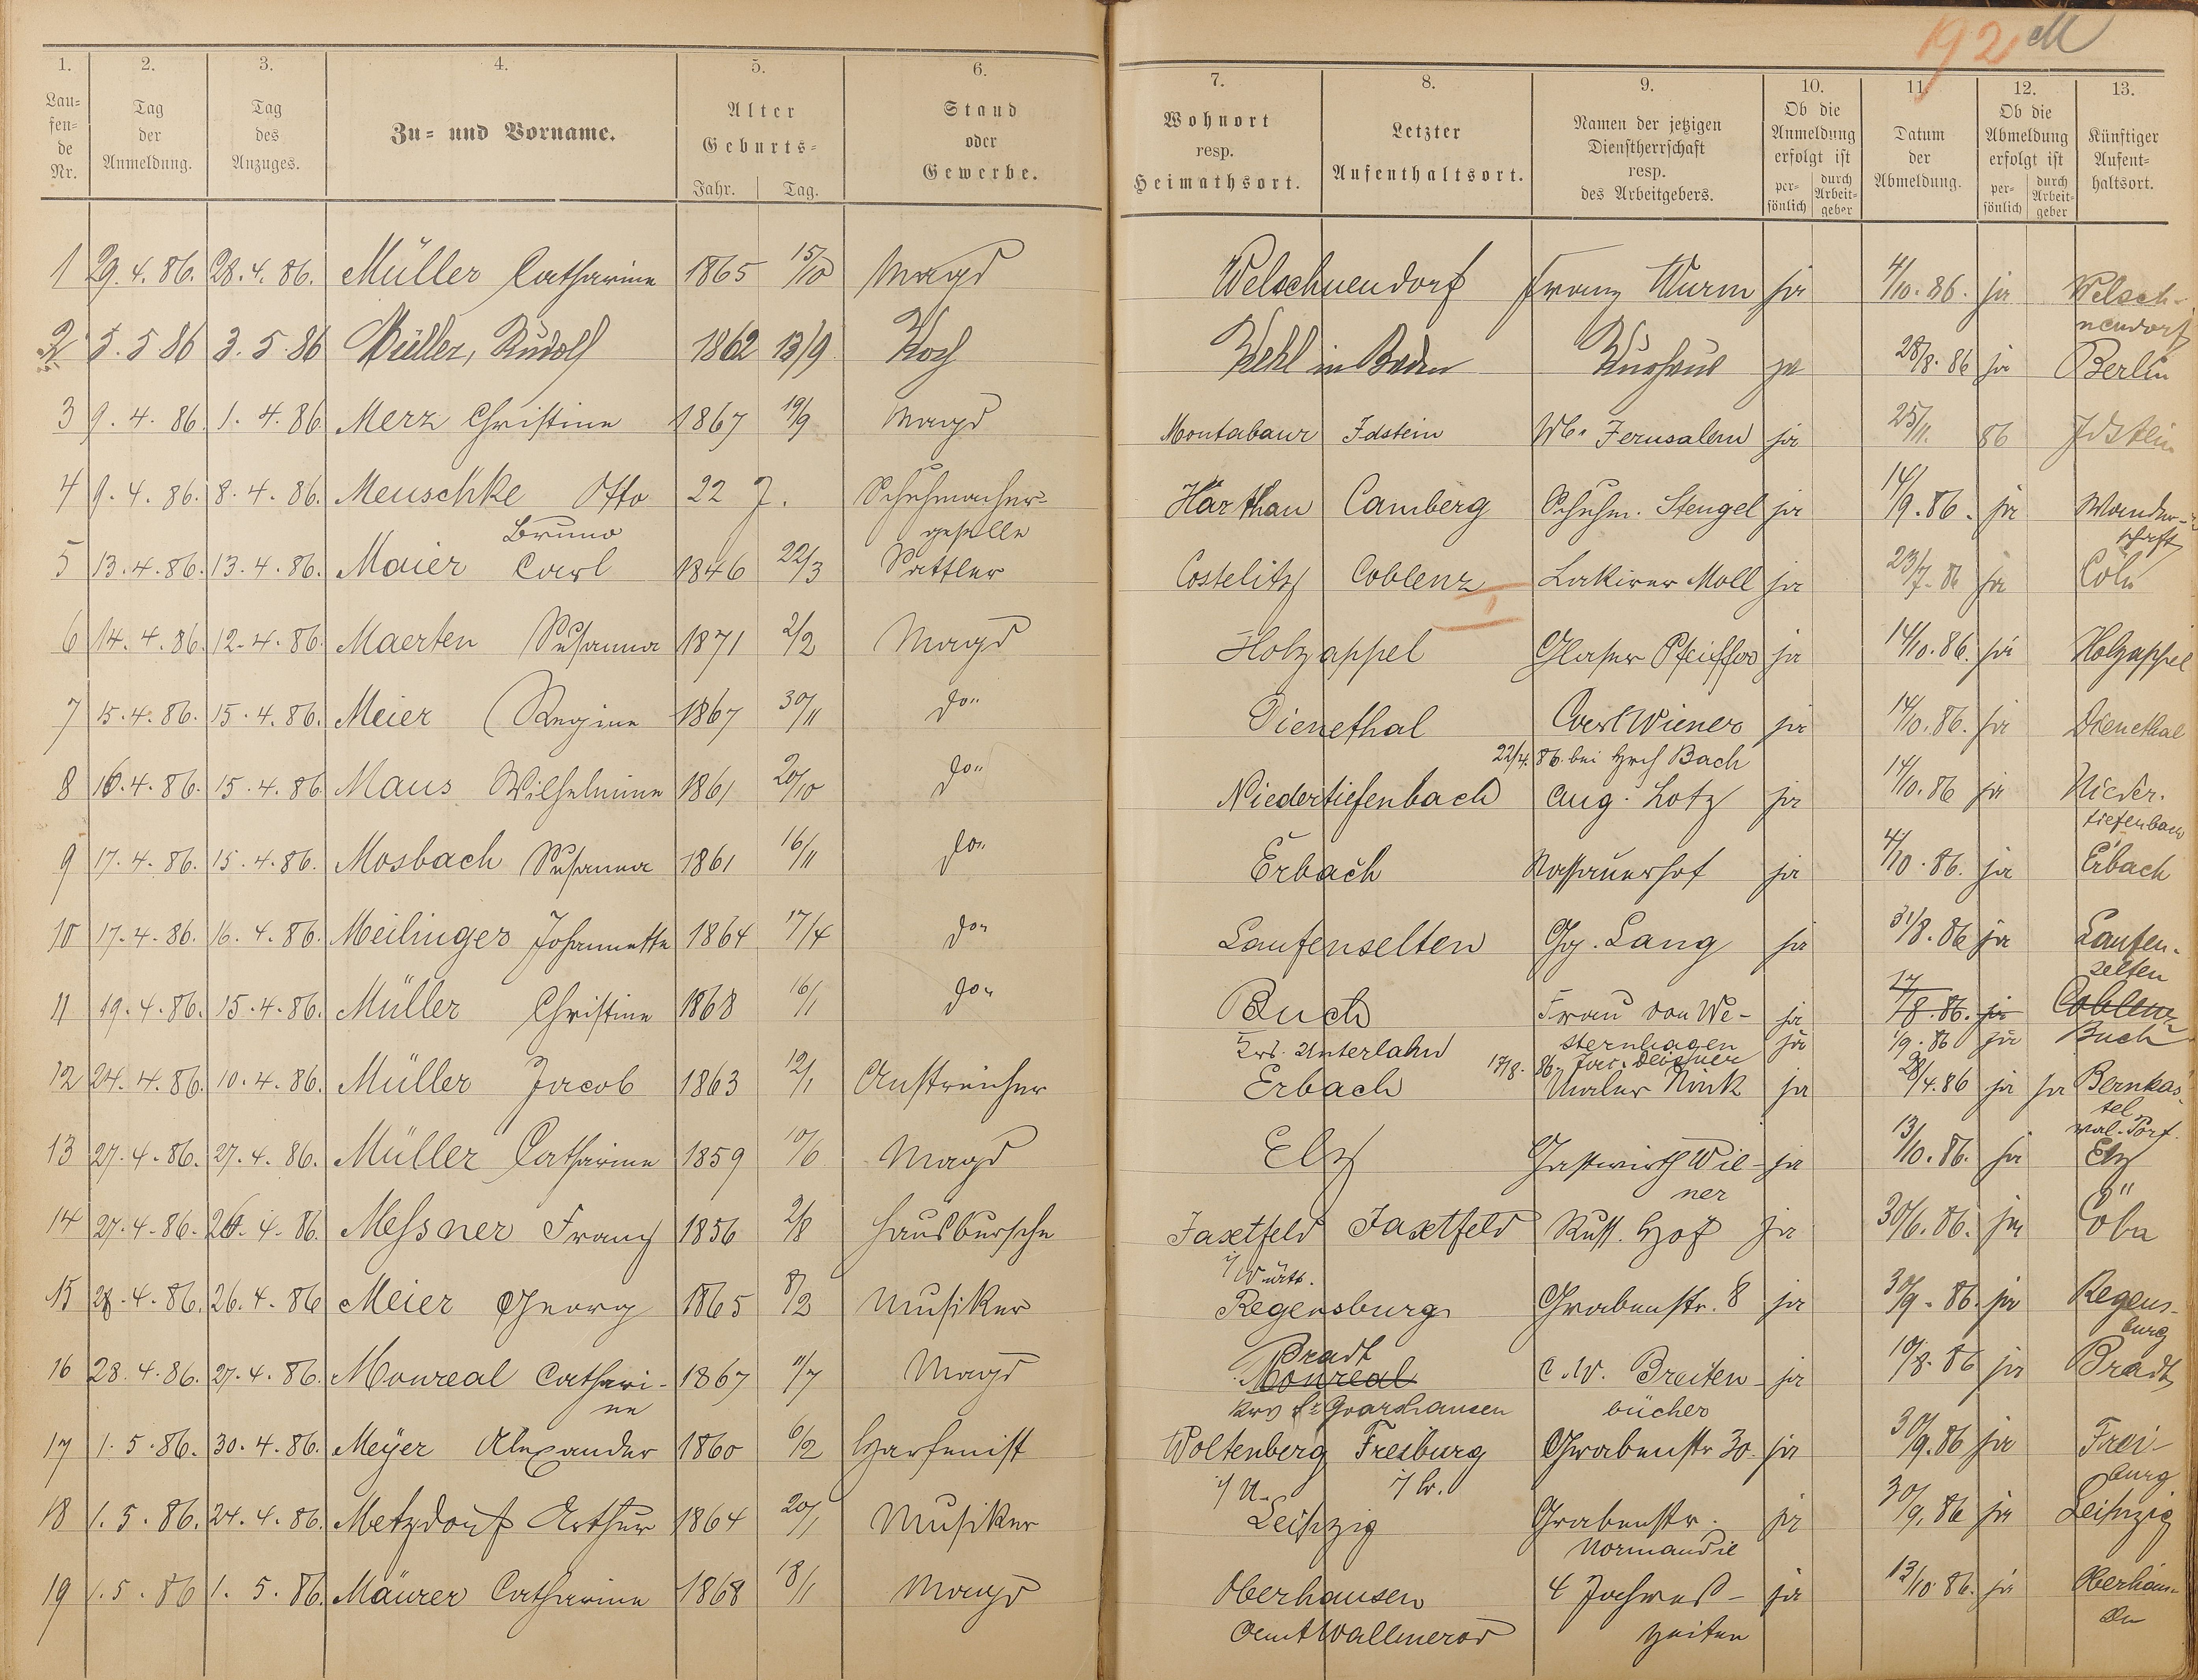 192 M
1. 2. 3. 4. 5. 6. 7. 8. 9. 10. 11. 12. 13.
Laufende Nr. Tag der Anmeldung. Tag des Anzuges. Zu- und Vorname. Alter Geburts- Jahr. Tag. Stand oder Gewerbe. Wohnort resp. Heimathsort. Letzter Aufenthaltsort. Namen der jetzigen Dienstherrschaft resp. des Arbeitgebers. Ob die Anmeldung erfolgt ist persönlich durch Arbeitgeber Datum der Abmeldung. Ob die Abmeldung erfolgt ist persönlich durch Arbeitgeber Künftiger Aufenthaltsort.
1 29.4.86. 28.4.86. Müller Catharine 1865 15/10 Magd Welschneudorf Franz Wurm ja 4/10.86. ja Welsch-
neudorf
2 3.5 86 3.5.86 Müller, Rudolf 1862 13/9 Koch Kehl in Baden Kurhaus ja 28/8.86 ja Berlin
3 9.4.86 1.4.86 Merz Christine 1867 19/9 Magd Montabaur Idstein Wb. Jerusalem ja 25/11. 86 Idstein
4 9.4.86. 8.4.86. Meuschke Otto 22 J. Schuhmacher- Harthau Camberg Schuhm. Stengel ja 14/9.86. ja Wander-
Bruno geselle schaft
5 13.4.86. 13.4.86. Maier Carl 1846 22/3 Sattler Costelitz Coblenz Lakirer Moll ja 23/7.86 ja Cöln
6 14.4.86. 12.4.86. Maerten Susanna 1871 2/2 Magd Holzappel Glaser Pfeiffer ja 14/10.86. ja Holzappel
7 15.4.86. 15.4.86. Meier Regine 1867 30/11 do. Dienethal Carl Wiener ja 14/10.86. ja Dienethal
22/4.86. bei Hrch Bach
8 16.4.86. 15.4.86 Maus Wilhelmine 1861 20/10 do. Niedertiefenbach Aug. Lotz ja 14/10.86 ja Nieder-
tiefenbach
9 17.4.86. 15.4.86. Mosbach Susanna 1861 16/11 do. Erbach Nassauerhof ja 4/10.86. ja Erbach
10 17.4.86. 16.4.86. Meilinger Johannette 1864 17/4 do. Laufenselten Gg. Lang ja 31/8.86 ja Laufen-
selten
11 19.4.86. 15.4.86. Müller Christine 1868 16/1 do. Buch Frau von We- ja 17/8.86. ja Coblenz
Krs. Unterlahn sternhagen ja 1/9.86 ja Buch
17/8. 86.
12 24.4.86. 10.4.86. Müller Jacob 1863 12/1 Anstreicher Erbach Maler Nink ja 28/4.86 ja ja Bernkas-
tel
13 27.4.86. 27.4.86. Müller Catharine 1859 10/6 Magd Elz Gastwirth Wie- ja 13/10.86. ja Elz
ner
14 27.4.86. 26.4.86. Messner Franz 1856 2/8 Hausbursche Jaxtfeld Jaxtfeld Russ. Hof ja 30/6.86. ja Cöln
i/Württ.
15 28.4.86. 26.4.86 Meier Georg 1865 8/2 Musiker Regensburg Grabenstr. 8 ja 30/9.86. ja Regens-
burg
Pradt
16 28.4.86. 27.4.86. Monreal Cathari- 1867 11/7 Magd Monreal C.W. Breiten- ja 10/8.86 ja Bradt
ne Krs St Goarshausen bücher
17 1.5.86. 30.4.86. Meÿer Alexander 1860 6/2 Harfenist Woltenberg Freiburg Grabenstr 30 ja 30/9.86 ja Frei-
i/U. i/Br. burg
18 1.5.86. 24.4.86. Metzdorf Arthur 1864 20/1 Musiker Leipzig Grabenstr. ja 30/9.86 ja Leipzig
Normandie
19 1.5.86 1.5.86. Maurer Catharine 1868 18/1 Magd Oberhausen 4 Jahres- ja 13/10.86. ja Oberhau-
Amt Wallmerod zeiten sen